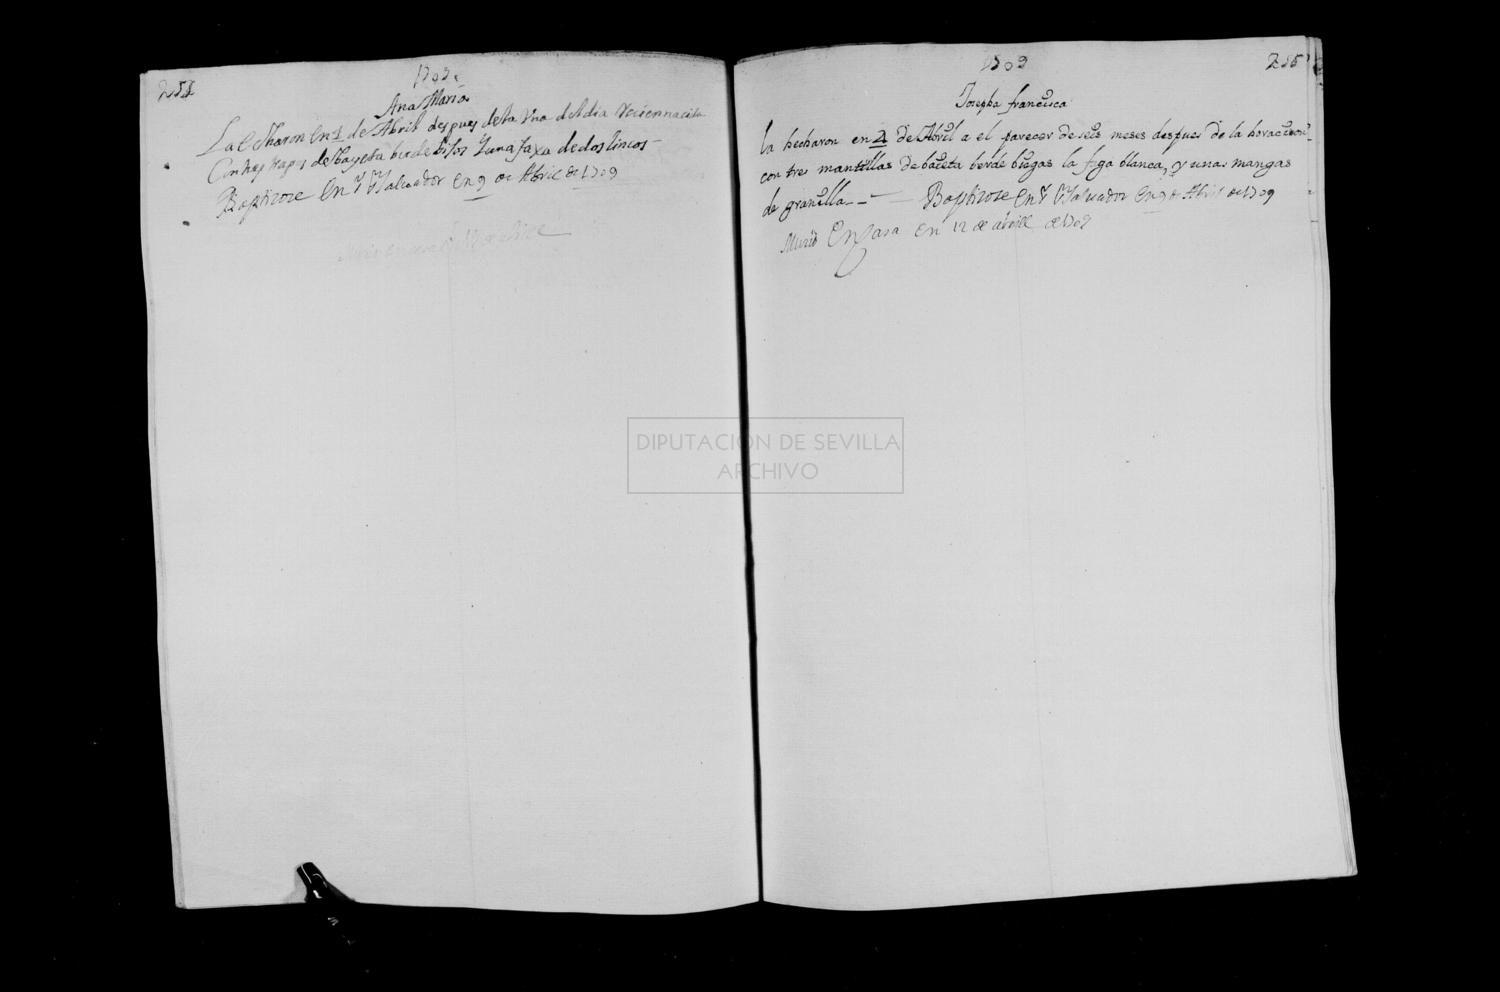 1709.
Ana Maria
La Echaron En 1 de Abril despues de la Una del dia Recien nacida
Con tres trapos de Bayeta berde biejos Y una faxa de dos lincos
Baptizose En Sr Salvador en 9 de Abril de 1709
1709
Josepha francisca
la hecharon en 2 de Abril a el parecer de seis meses despues de la horacion
con tres mantillas de baieta berde biegas la faga blanca, y unas mangas
de granilla Baptizose En Sr Salvador En 9 de Abril de 1709
Murio En Casa en 12 de abrill de 1709
DIPUTACIÓN DE SEVILLA
ARCHIVO